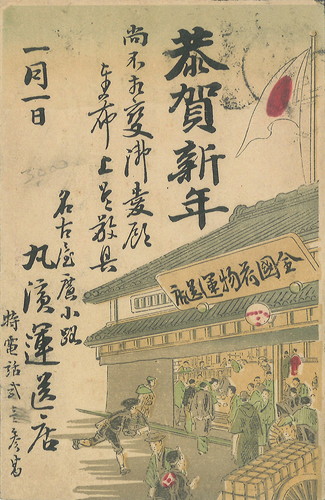 恭賀新年
尚不相変御愛顧
奉希上候敬具
一月一日
名古屋廣小路
丸濱運送店
特電話弐三参番
全國荷物運送所